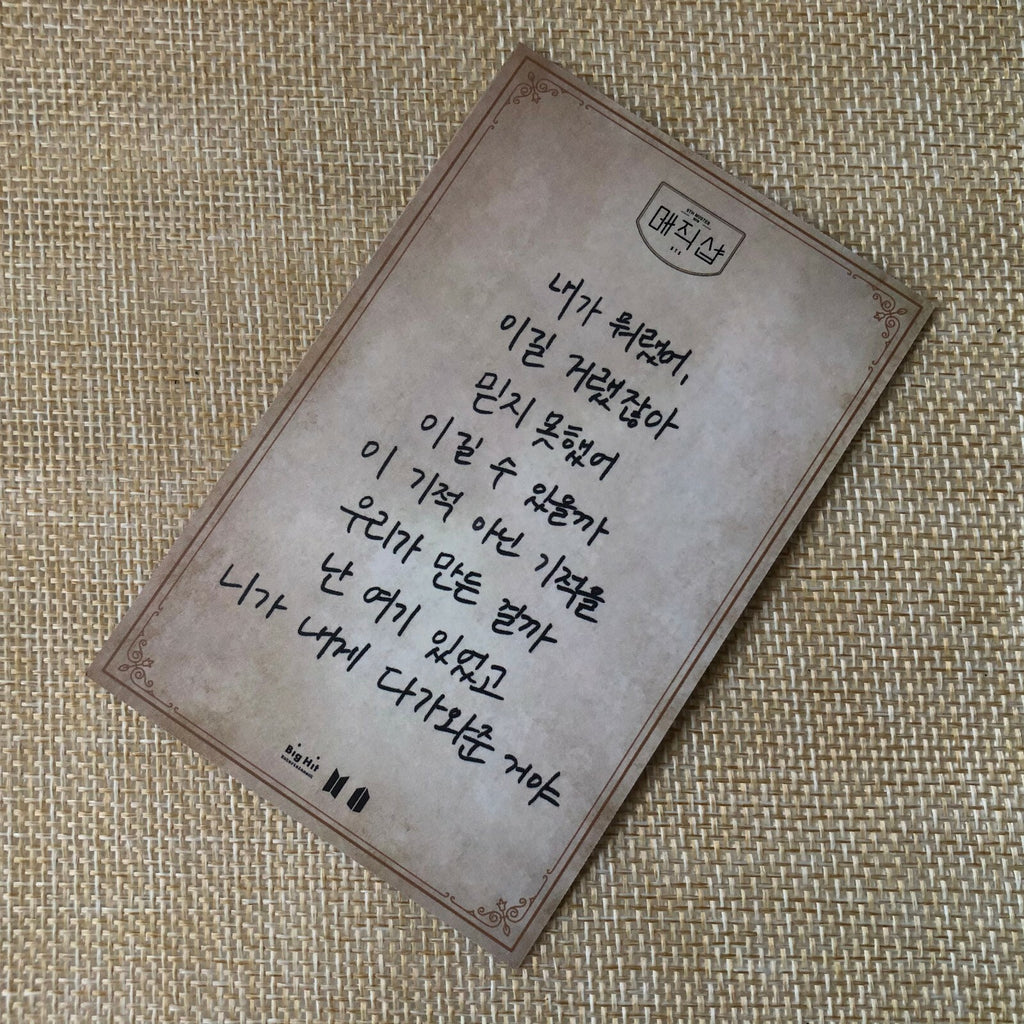 5TH MUSTER
BTS
매직샵
BTS
내가 뭐랬어,
이길 거랬잖아
믿지 못했어
이길 수 있을까
이 기적 아닌 기적을
우리가 만든 걸까
난 여기 있었고
니가 내게 다가와준 거야
Big Hit
ENTERTAINMENT